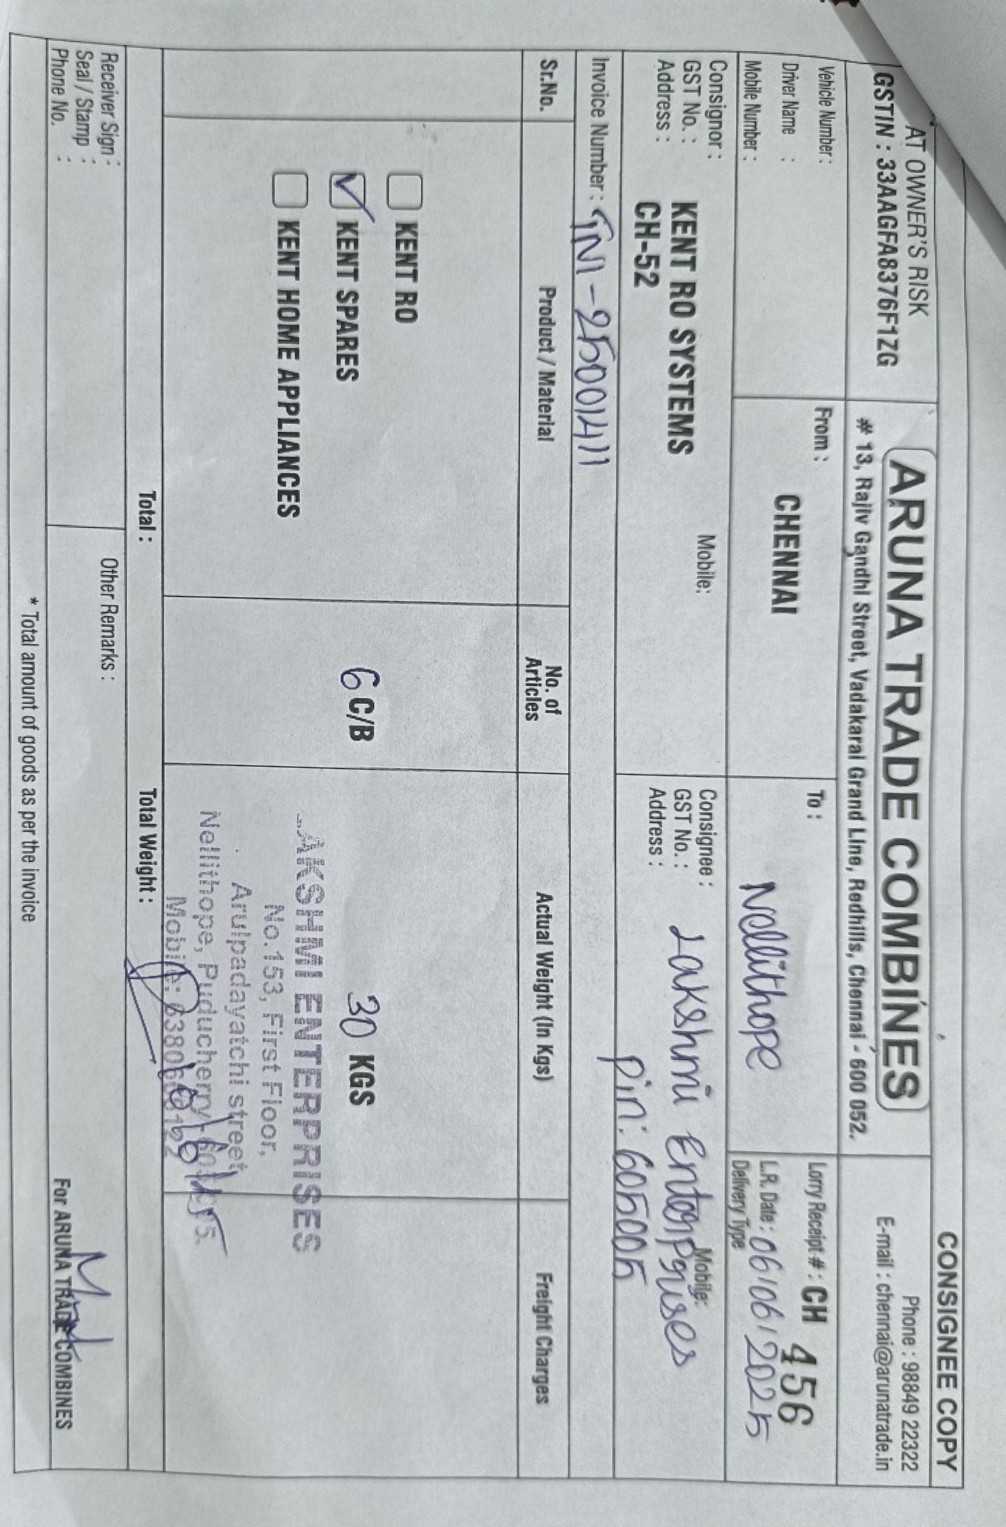 CONSIGNEE COPY
AT OWNER'S RISK
GSTIN : 33AAGFA8376F1ZG
ARUNA TRADE COMBINES
# 13, Rajiv Gandhi Street, Vadakarai Grand Line, Redhills, Chennai - 600 052.
Phone : 98849 22322
E-mail : chennai@arunatrade.in
Vehicle Number :
Driver Name :
Mobile Number :
From :
CHENNAI
To :
Nellithope
Lorry Receipt # : CH 456
L.R. Date : 06/06/2025
Delivery Type
Consignor : KENT RO SYSTEMS Mobile:
GST No. : CH-52
Address :
Consignee : Lakshmi Enterprises Mobile:
GST No. :
Address : Pin: 605005
Invoice Number : TN1-25001411
Sr.No. Product / Material No. of Articles Actual Weight (In Kgs) Freight Charges
KENT RO
KENT SPARES 6 C/B 30 KGS
KENT HOME APPLIANCES
LAKSHMI ENTERPRISES
No.153, First Floor,
Arulpadayatchi street
Nellithope, Puducherry
Mobile:
Total : Total Weight :
Receiver Sign :
Seal / Stamp :
Phone No. :
Other Remarks :
For ARUNA TRADE COMBINES
* Total amount of goods as per the invoice